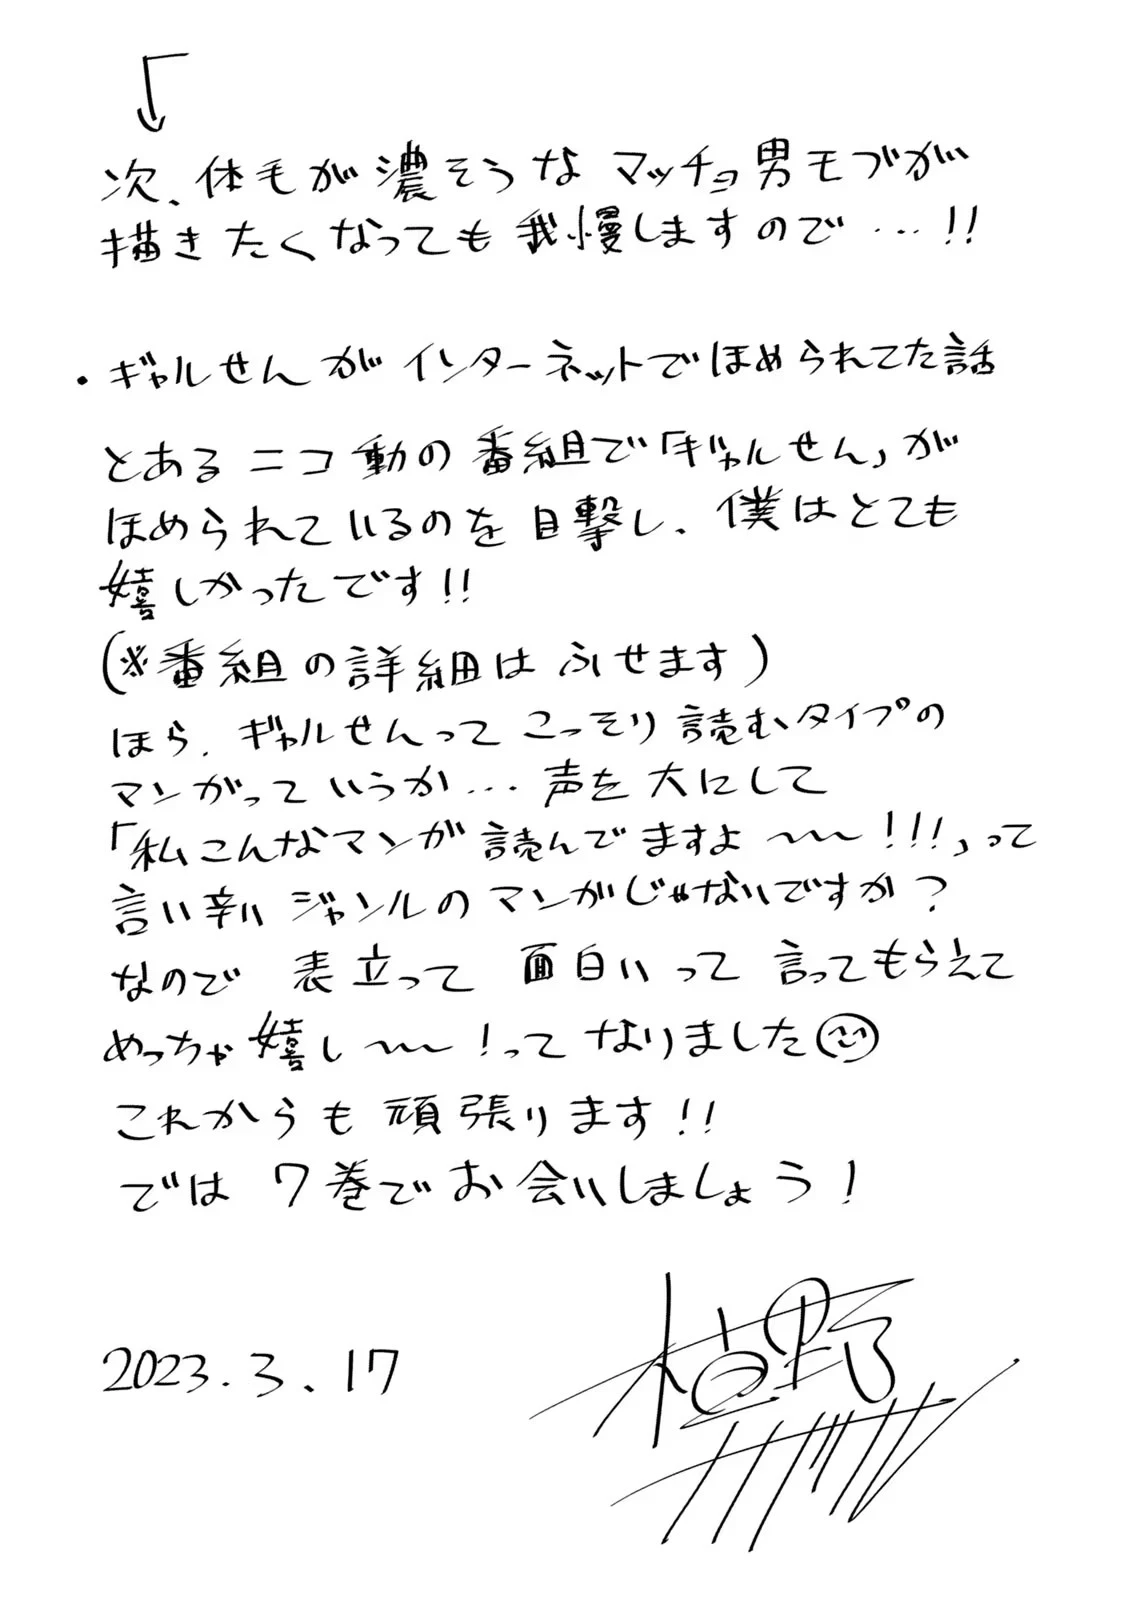 次、体毛が濃そうなマッチョ男モブが
描きたくなっても我慢しますので…!!
・ギャルせんがインターネットでほめられてた話
とあるニコ動の番組で「ギャルせん」が
ほめられているのを目撃し、僕はとても
嬉しかったです!!
(※番組の詳細はふせます)
ほら、ギャルせんってこっそり読むタイプの
マンガっていうか…声を大にして
「私こんなマンガ読んでますよ〜〜!!!」って
言い辛いジャンルのマンガじゃないですか?
なので 表立って 面白いって 言ってもらえて
めっちゃ嬉し〜〜!ってなりました
これからも頑張ります!!
では 7巻でお会いしましょう!
2023.3.17
植野